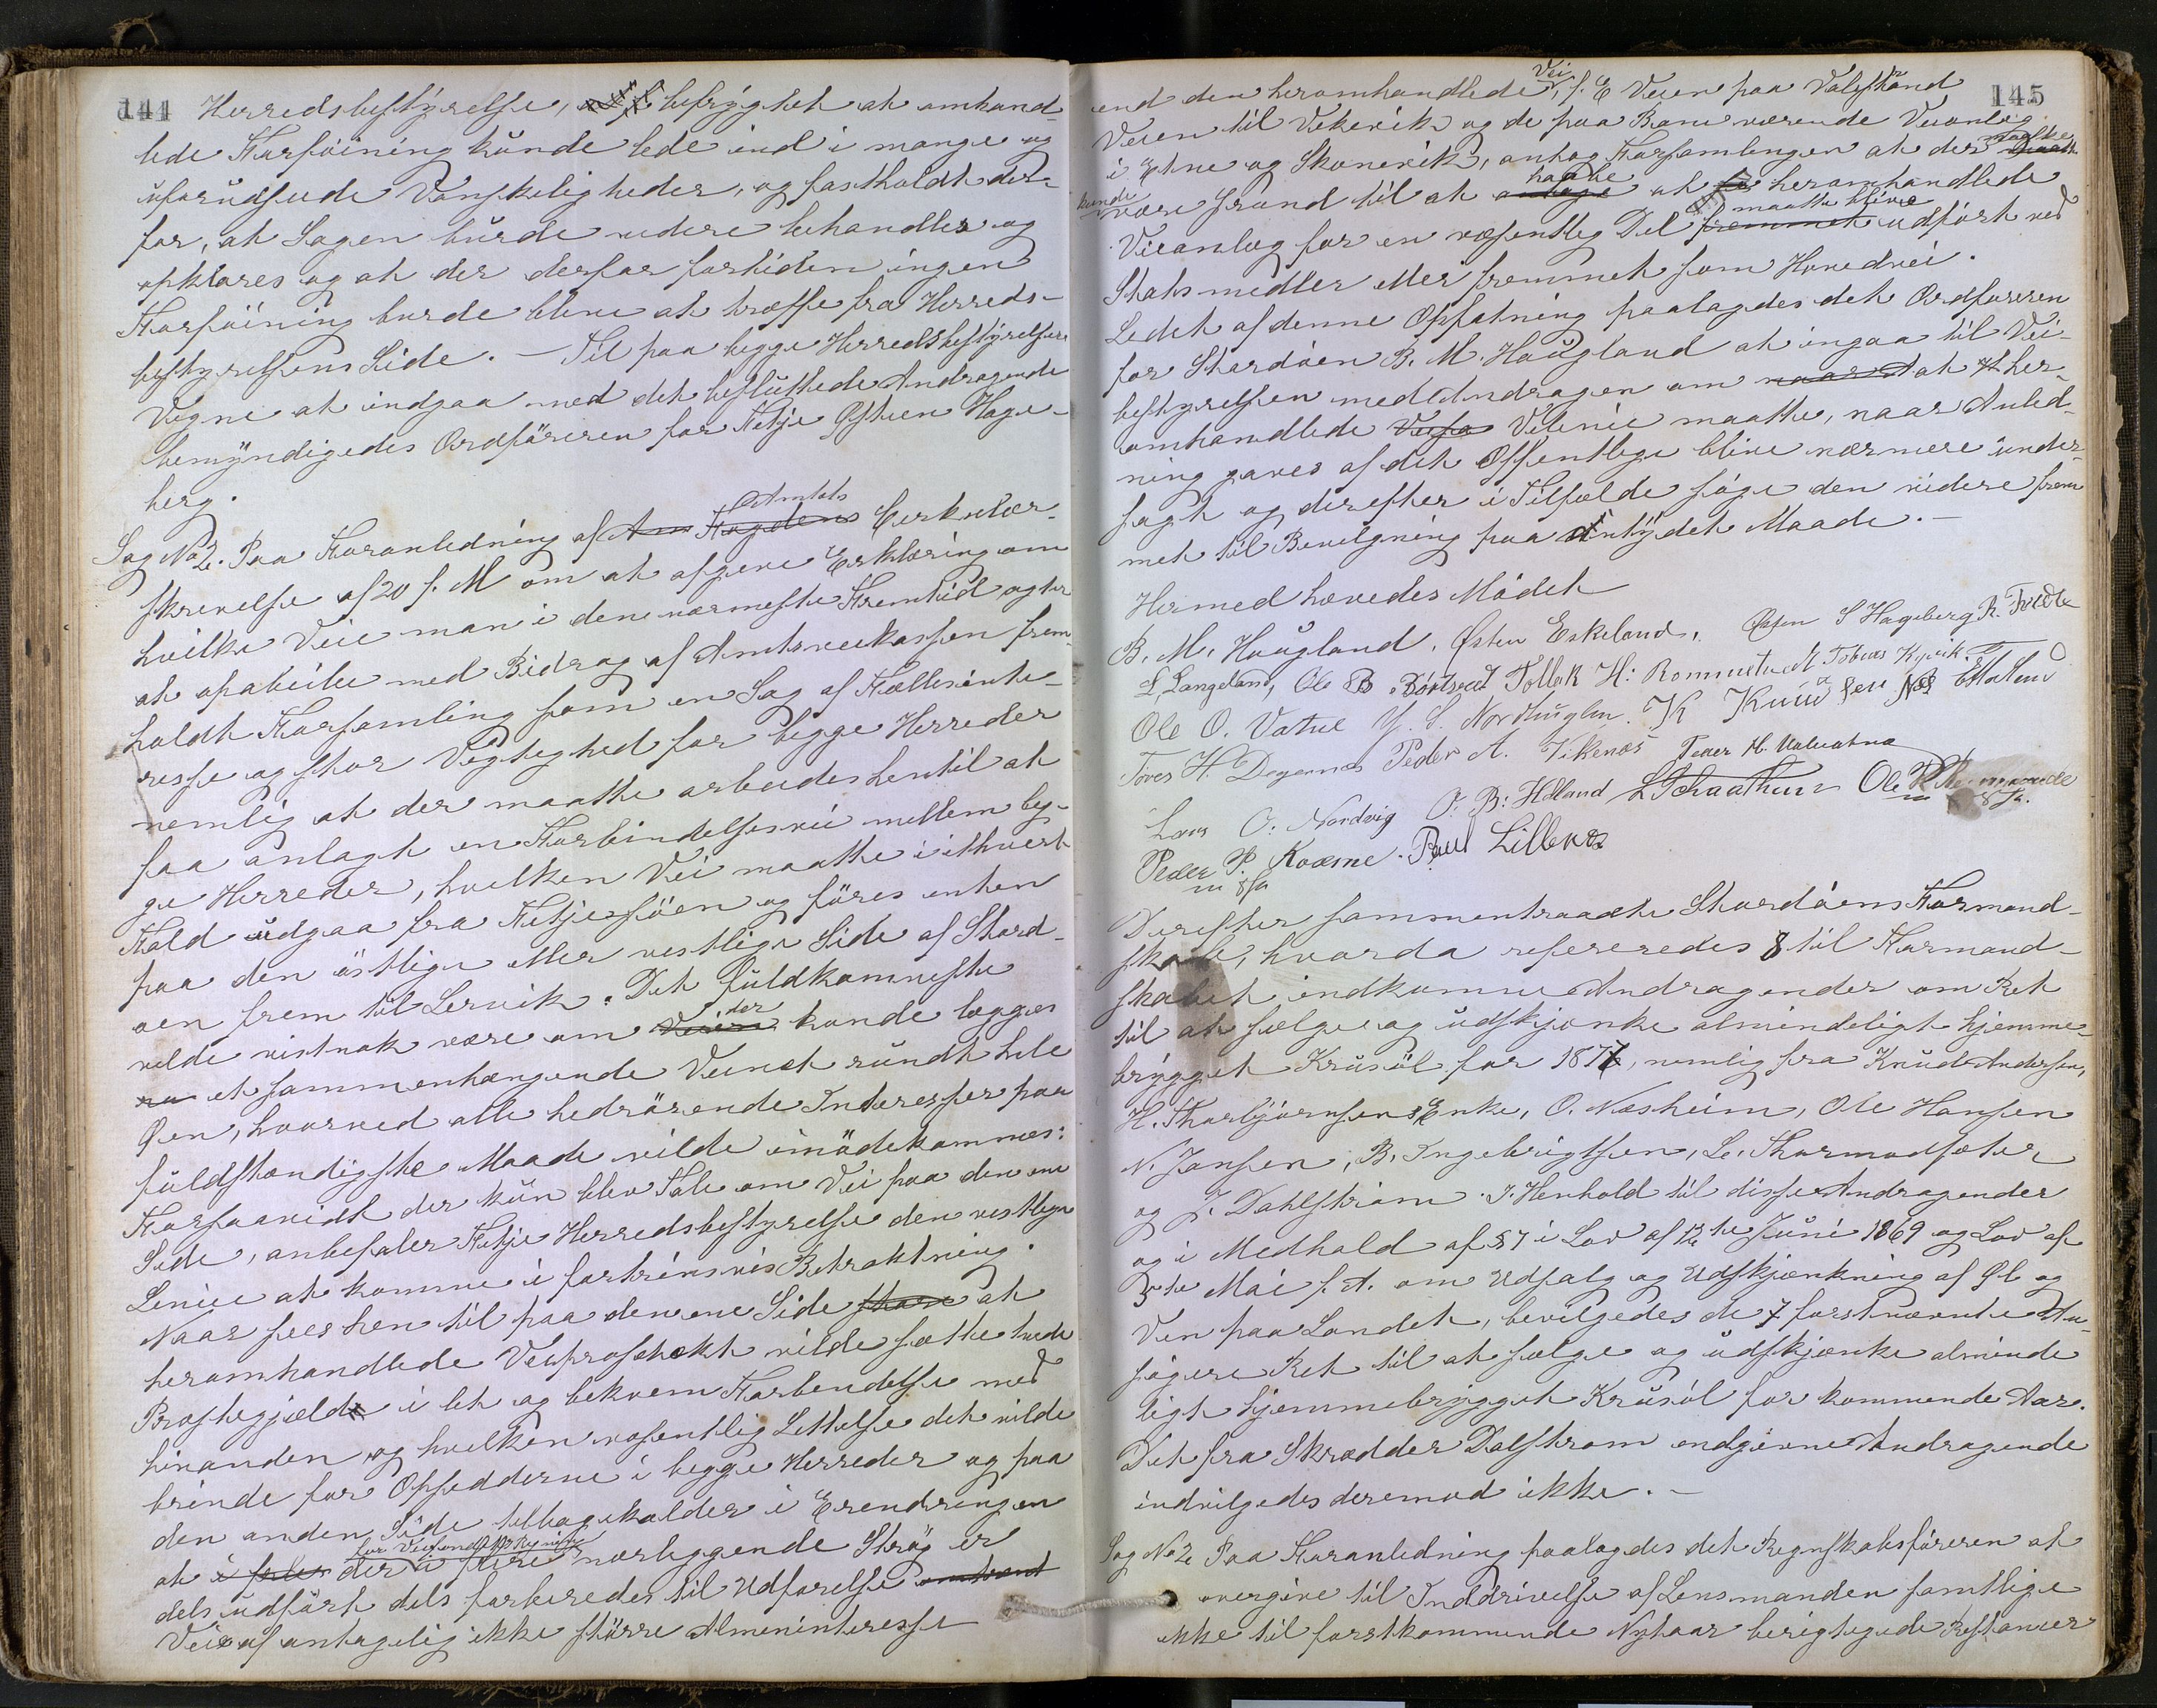 144
Herredsbestyrelse, befrygtet at omhand-
lede Forføining kunde lede ind i mange og
uforudseede Vanskeligheder, og fastholdt der-
for, at Sagen burde videre behandles og
opklares og at der derfor fortiden ingen
Forføining burde blive at træffe fra Herreds-
bestyrelsens Side. — Til paa begge Herredsbestyrelsers
Vegne at indgaa med det besluttede Andragende
bemyndigedes Ordføreren for Fitje Østen Hage-
berg.
Sag No 2. Paa Foranledning af Amtets Cirkulær-
skrivelse af 20 f. M om at afgive Erklæring om
hvilke Veie man i den nærmeste Fremtid agter
at oparbeide med Bidrag af Amtsveikassen frem-
holdt Forsamling som en Sag af Fællesinte-
resse og stor Vigtighed for begge Herreder
nemlig at der maatte arbeides hentil at
faa anlagt en Forbindelsesvei mellem beg-
ge Herreder, hvilken Vei maatte i ethvert
Fald udgaa fra Fitjesjøen og føres enten
paa den østlige eller vestlige Side af Stord-
øen frem til Lervik. Det fuldkomneste
vilde vistnok være om der kunde lægges
et sammenhængende Veinet rundt hele
Øen, hvorved alle hedrørende Interesser paa
fuldstændigste Maade vilde imødekommes:
Forsaavidt der kun blev Tale om Vei paa den ene
Side, anbefaler Fitje Herredsbestyrelse den vestlige
Linie at komme i fortrinsvis Betraktning.
Naar sees hen til paa den ene Side at
heromhandlede Veiprosjekt vilde sætte tvende
Præstegjæld i let og bekvem Forbindelse med
hinanden og hvilken væsentlig Lettelse det vilde
bringe for Opsidderne i begge Herreder og paa
den anden Side tilbagekalder i Erendringen
at der i flere nærliggende Strøg er
dels udført dels forberedes til Udførelse
Veie af antagelig ikke større Almeninteresse
145
end den heromhandlede Vei, f. E Veien paa Valestrand
Veien til Vikevik og de paa Bane værende Veianlæg
i Etne og Skonevik, antog Forsamlingen at der maatte
kunde være Grund til at haabe at heromhandlede
Veianlæg for en væsentlig Del maatte blive udført ved
Statsmidler eller fremmet som Hovedvei.
Ledet af denne Opfatning paalagdes det Ordføreren
for Stordøen B. M. Haugland at ingaa til Vei-
bestyrelsen med Andragen om at her-
omhandlede Veilinie maatte, naar Anled-
ning gaves af det Offentlige blive nærmere under-
søgt og derefter i Tilfælde søge den videre frem
met til Bevilgning paa antydet Maade. —
Hermed hævedes Mødet
B. M. Haugland. Østen Eskeland, Østen S Hageberg R. Tvedte
L Langeland, Ole B Børtveit Tollak H: Rommetvedt Tobias Kyvik.
Ole O. Vatne Y. S. Nordhuglen. K Knudsen Næs
Tores H. Djeernes Peder A. Vikenæs Peder H. Valvatna
Lars O. Nordvig O. B: Hdland L Schaathun Ole P
Peder P. Kværne. Paul Lillenæs
m f P
Derefter sammentraadte Stordøens Formand-
skab, hvorda refereredes 8 til Formand-
skabet indkomne Andragender om Ret
til at sælge og udskjænke almindeligt hjemme-
brygget Krusøl for 1877, nemlig fra Knud Andersen,
H. Thorbjørnsens Enke, O. Næsheim, Ole Hansen
N. Jansen, B. Ingebrigtsen, L. Thormodsæter
og J. Dahlstrøm. I Henhold til disse Andragender
og i Medhold af § 7 i Lov af 12te Juni 1869 og Lov af
3die Mai f. A. om Udsalg og Udskjænkning af Øl og
Vin paa Landet, bevilgedes de 7 førstnævnte An-
søgere Ret til at sælge og udskjænke alminde
ligt hjemmebrygget Krusøl for kommende Aar.
Det fra Skrædder Dalstrøm indgivne Andragende
indvilgedes deremod ikke. —
Sag No 2 Paa Foranledning paalagdes det Regnskabsføreren at
overgive til Inddrivelse af Lensmanden samtlige
ikke til førstkommende Nytaar berigtigede Restancer